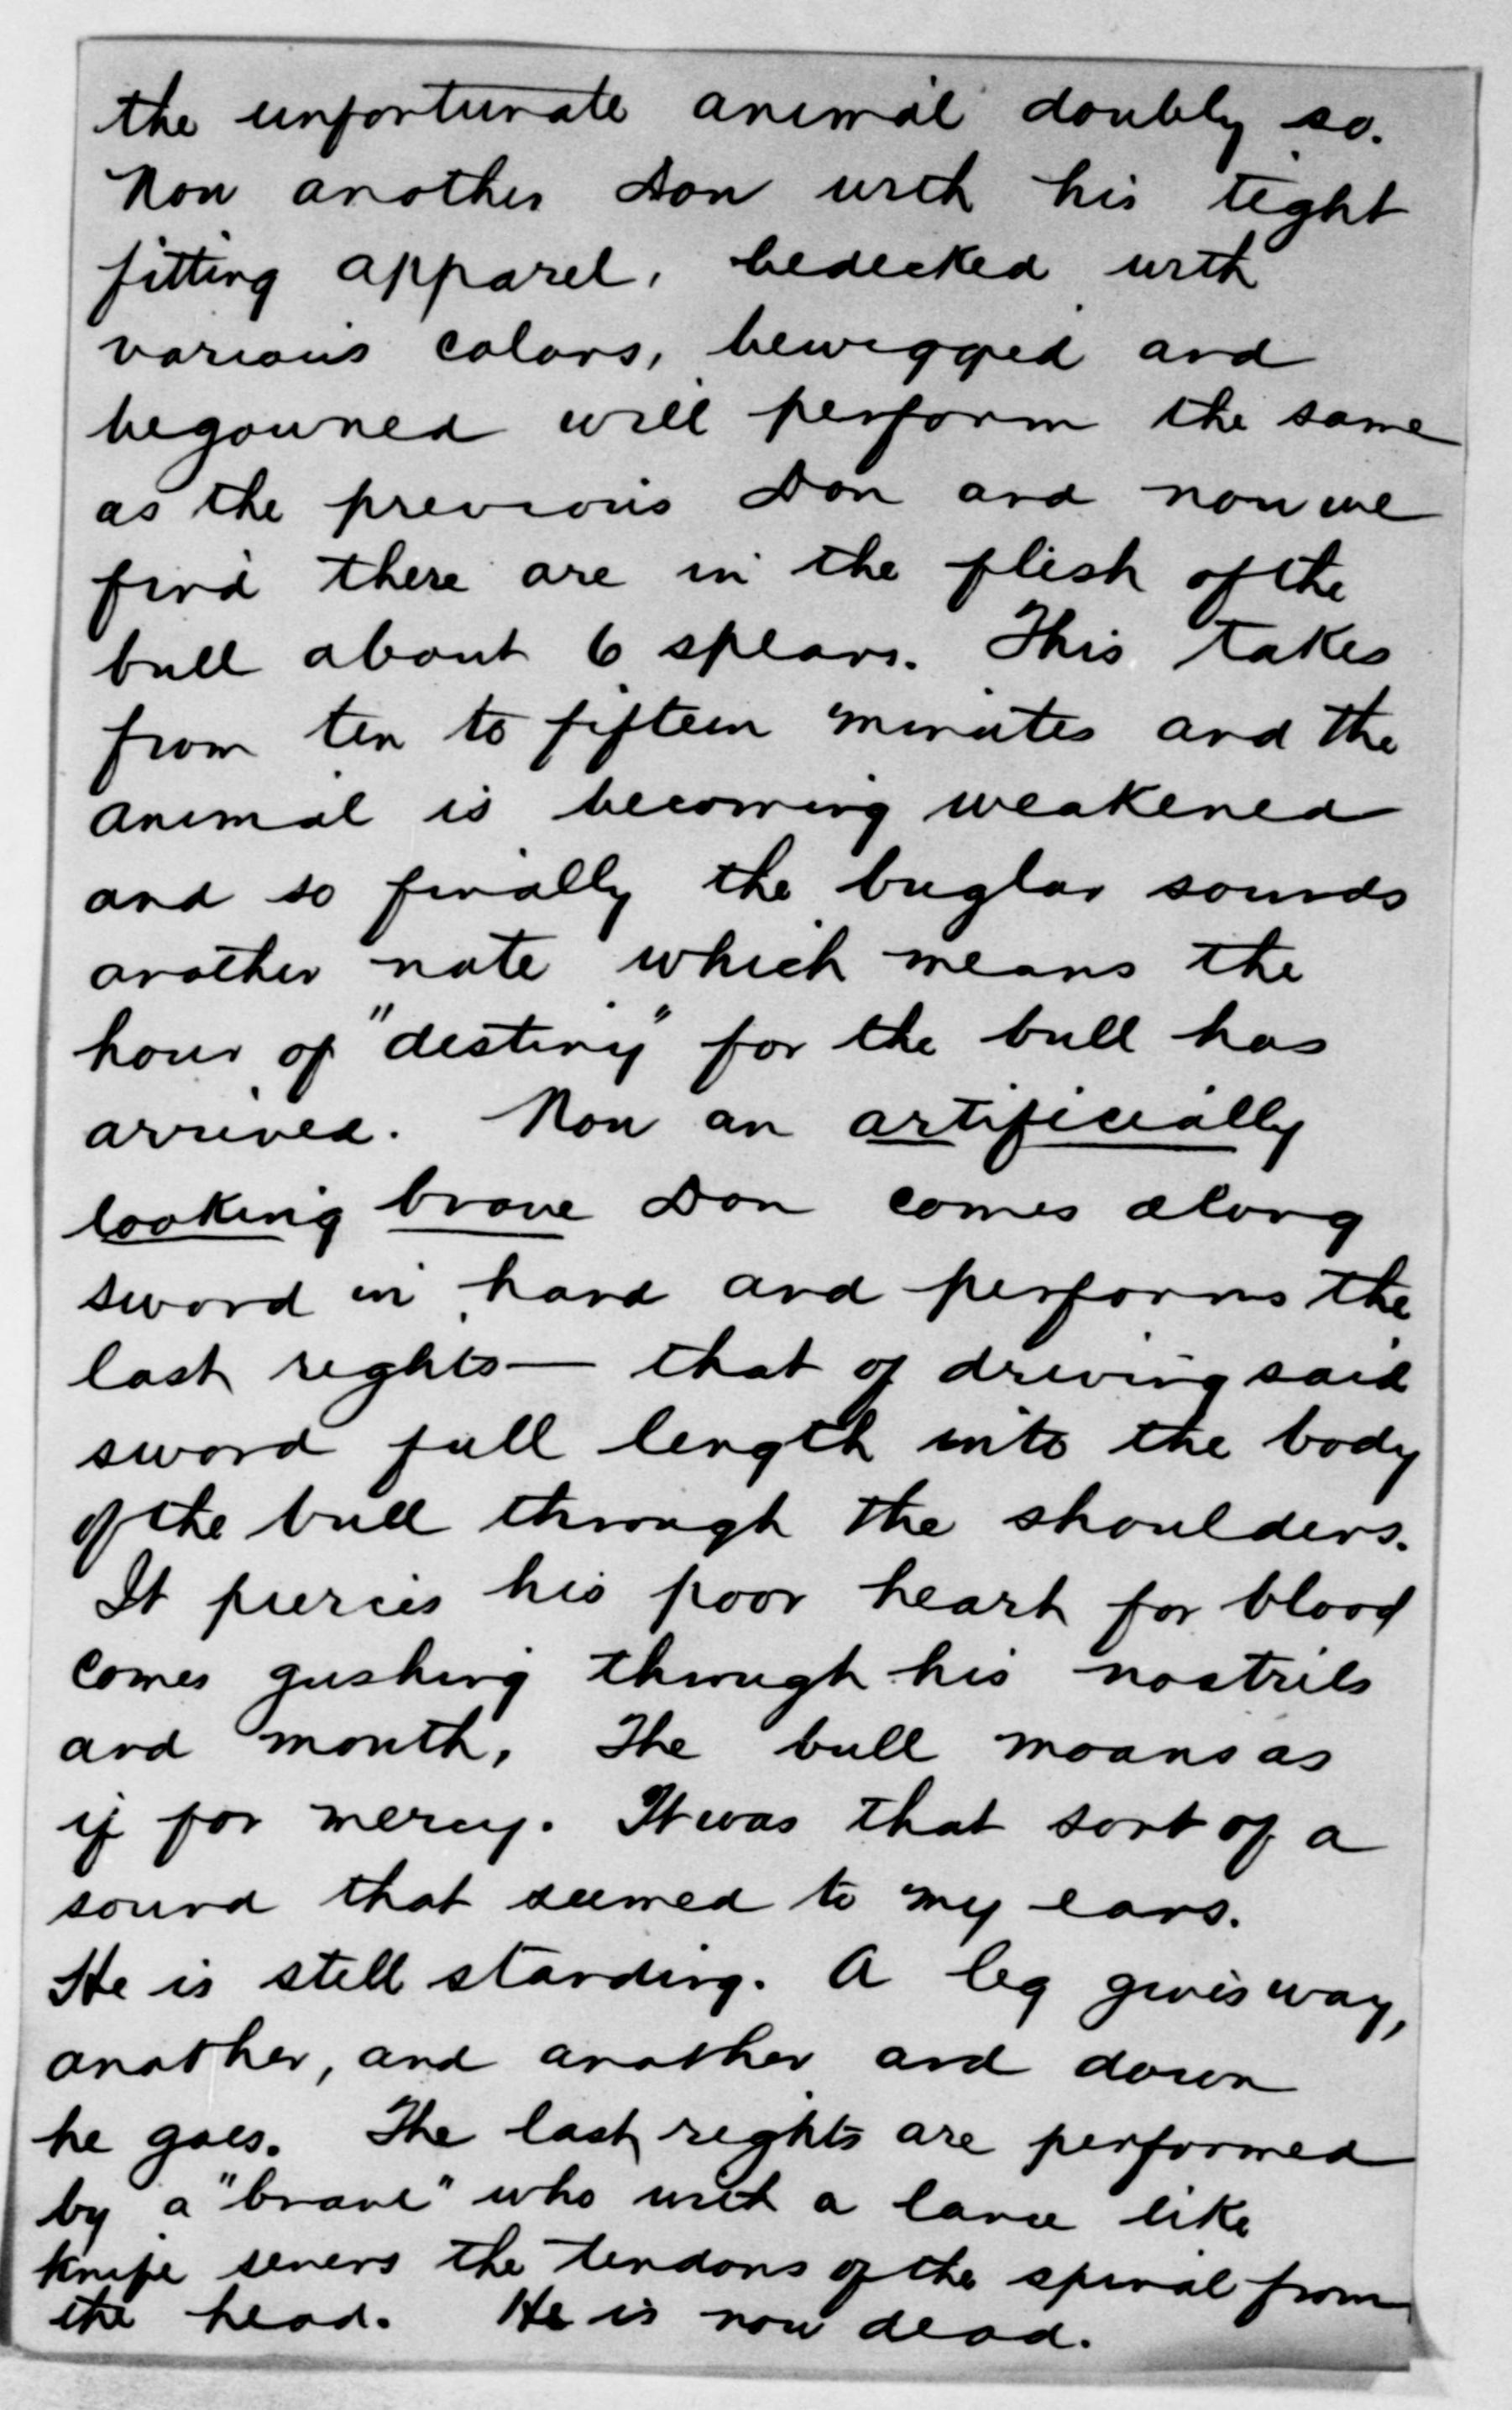 the unfortunate animal doubly so.
Now another Don with his tight
fitting apparel, bedecked with
various colors, bewigged and
begowned will perform the same
as the previous Don and now we
find there are in the flesh of the
bull about 6 spears. This takes
from ten to fifteen minutes and the
animal is becoming weakened
and so finally the buglar sounds
another note which means the
hour of "destiny" for the bull has
arrived. Now an artificially
looking brave Don comes along
sword in hand and performs the
last rights — that of driving said
sword full length into the body
of the bull through the shoulders.
It pierces his poor heart for blood
comes gushing through his nostrils
and mouth. The bull moans as
if for mercy. It was that sort of a
sound that seemed to my ears.
He is still standing. A leg gives way,
another, and another and down
he goes. The last rights are performed
by a "brave" who with a lance like
knife severs the tendons of the spinal from
the head. He is now dead.